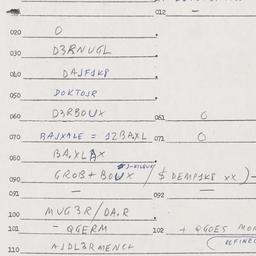 012 —
020 O
030 D3RNUGL
040 DAJF1K8
050 DOKTOJR
060 D3RBOUX 061 O
070 BAJXALE = 12BAXL 071 O
080 BA,YLAX
090 GROB+BOUX / $ DEMP1K8 XX) -
091 — 092 —
100 MUG3R/DA.R
101 - QGERM 102 + QGOES MOR
110 AJDL3RMENC+